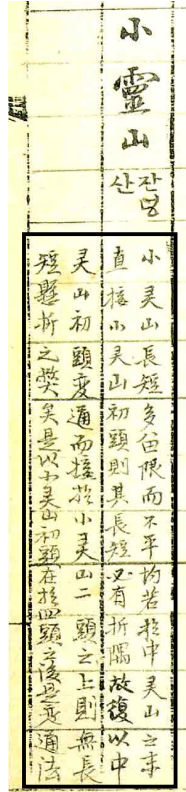 小靈山
잔영
산
小灵山長短多畄限而不平均若於中灵山之末
直接小灵山初頭則其長短必有折隅故復以中
灵山初頭変通而接於小灵山二頭之上則無長
短懸折之獘矣是以小灵山初頭在於四頭之後是変通法